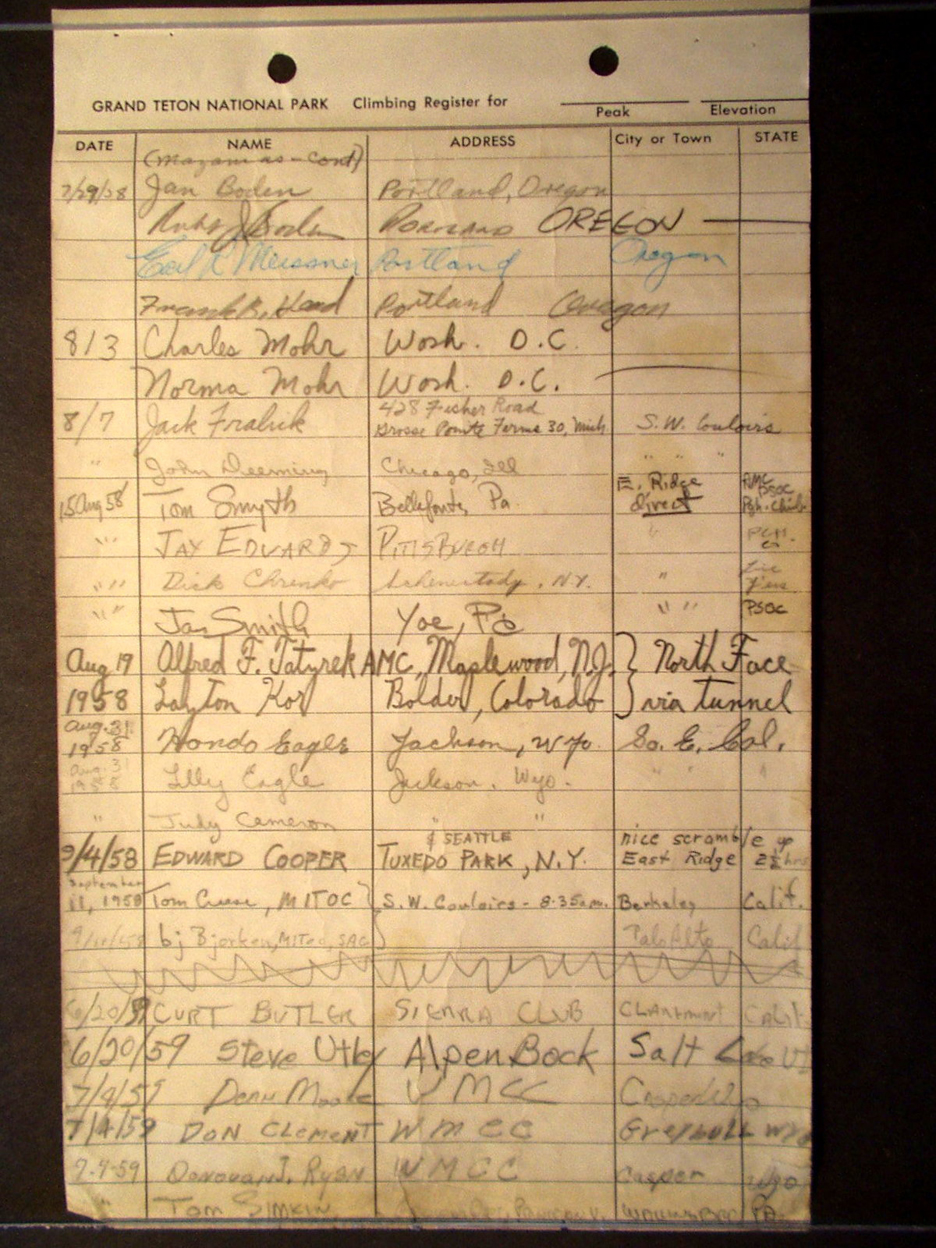 GRAND TETON NATIONAL PARK Climbing Register for
Peak Elevation
DATE NAME ADDRESS City or Town STATE
(Mazamas - cont)
7/29/58 Jan Boden Portland, Oregon
Boden OREGON
Earl R Meissner Portland Oregon
Frank R. Portland Oregon
8/3 Charles Mohr Wash. D.C.
Norma Mohr Wash. D.C.
8/7 Jack Fralick 428 Fisher Road
Grosse Pointe Farms 30, Mich S.W. Couloirs
" John Deeming Chicago, Ill " " "
15 Aug 58 Tom Smyth Bellefonte, Pa. E. Ridge direct PSOC
"" JAY EDWARDS PITTSBURGH "
"" Dick Schenectady, N.Y. "
"" Jas Smith Yoe, Pa " " PSOC
Aug 19 Alfred F. Tatyrek AMC, Maplewood, N.J. } North Face
1958 Layton Kor Bolder, Colorado } via tunnel
Aug. 31 1958 Hondo Eagle Jackson, Wyo. So. E. Col.
Aug. 31 1958 Lilly Eagle Jackson, Wyo. " " "
" Judy Cameron " "
9/4/58 EDWARD COOPER & SEATTLE
TUXEDO PARK, N.Y. nice scramble up
East Ridge 2½ hrs
September 11, 1958 Tom , MITOC } S.W. Couloirs - 8:35 a.m. Berkeley Calif.
bj Bjorken, MITOC, SAC Palo Alto Calif
6/20/59 CURT BUTLER SIERRA CLUB CLAREMONT CALIF
6/20/59 Steve Utley AlpenBock Salt Lake UT
7/4/59 WMCC
7/4/59 DON CLEMENT WMCC Greybull Wyo
7-4-59 Donovan J. Ryan WMCC Casper Wyo
" TOM SIMKIN PA.